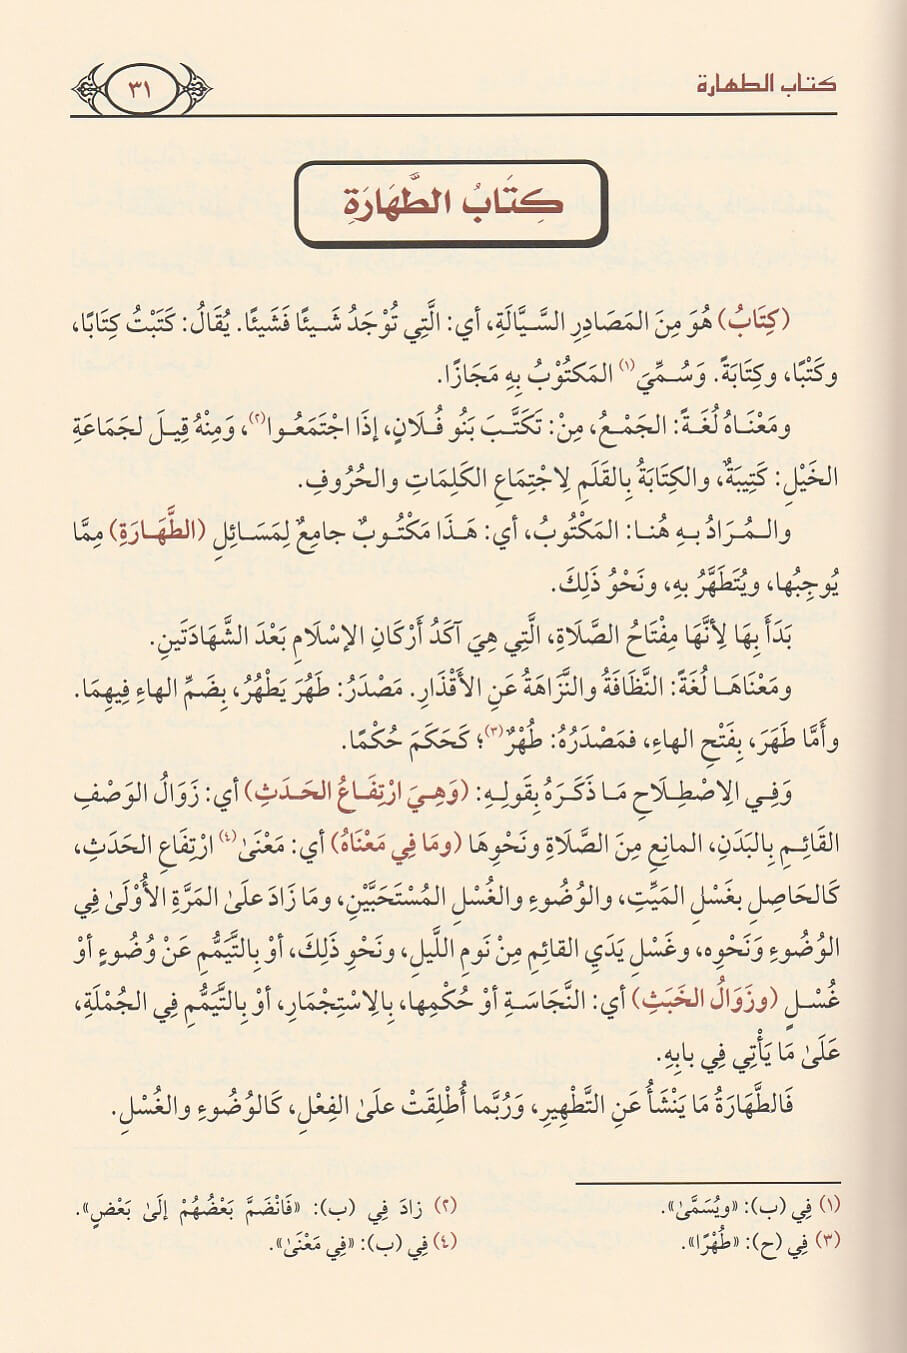 كتاب الطهارة
٣١
كِتَابُ الطَّهَارَةِ
(كِتَابُ) هُوَ مِنَ المَصَادِرِ السَّيَّالَةِ، أي: الَّتِي تُوْجَدُ شَيئًا فَشَيئًا. يُقَالُ: كَتَبْتُ كِتَابًا،
وكَتْبًا، وكِتَابَةً. وَسُمِّيَ(١) المَكتُوْبُ بِهِ مَجَازًا.
ومَعْنَاهُ لُغَةً: الجَمْعُ، مِنْ: تَكَتَّبَ بَنُو فُلَانٍ، إذَا اجْتَمَعُوا(٢)، وَمِنْهُ قِيلَ لجَمَاعَةِ
الخَيْلِ: كَتِيبَةٌ، والكِتَابَةُ بِالقَلَمِ لِاجْتِمَاعِ الكَلِمَاتِ والحُرُوفِ.
والمُرَادُ بهِ هُنا: المَكْتُوبُ، أي: هَذَا مَكْتُوبٌ جامِعٌ لِمَسَائِلِ (الطَّهَارَةِ) مِمَّا
يُوجِبُها، ويُتَطَهَّرُ بهِ، ونَحْوُ ذَلِكَ.
بَدَأَ بِهَا لِأنَّهَا مِفْتَاحُ الصَّلَاةِ، الَّتِي هِيَ آكَدُ أَرْكَانِ الإسْلَامِ بَعْدَ الشَّهَادَتَينِ.
ومَعْنَاهَا لُغَةً: النَّظَافَةُ والنَّزَاهَةُ عَنِ الأَقْذَارِ. مَصْدَرُ: طَهُرَ يَطْهُرُ، بِضَمِّ الهاءِ فِيهِمَا.
وأَمَّا طَهَرَ، بِفَتْحِ الهاءِ، فمَصْدَرُهُ: طُهْرٌ(٣)؛ كَحَكَمَ حُكْمًا.
وَفِي الِاصْطِلَاحِ مَا ذَكَرَهُ بِقَولِهِ: (وَهِيَ ارْتِفَاعُ الحَدَثِ) أي: زَوَالُ الوَصْفِ
القَائِمِ بِالبَدَنِ، المانِعِ مِنَ الصَّلَاةِ ونَحْوِهَا (ومَا فِي مَعْنَاهُ) أي: مَعْنَىٰ(٤) ارْتِفَاعِ الحَدَثِ،
كَالحَاصِلِ بغَسْلِ المَيِّتِ، والوُضُوءِ والغُسْلِ المُسْتَحَبَّيْنِ، ومَا زَادَ علىٰ المَرَّةِ الأُوْلَىٰ فِي
الوُضُوءِ وَنَحْوِه، وغَسْلِ يَدَيِ القائِمِ مِنْ نَومِ اللَّيلِ، ونَحْوِ ذَلِكَ، أوْ بِالتَّيَمُّمِ عَنْ وُضُوءٍ أوْ
غُسْلٍ (وزَوَالُ الخَبَثِ) أي: النَّجَاسَةِ أوْ حُكْمِها، بِالِاسْتِجْمَارِ، أوْ بِالتَّيَمُّمِ فِي الجُمْلَةِ،
عَلَىٰ مَا يَأْتِي فِي بابِهِ.
فَالطَّهَارَةُ مَا يَنْشَأُ عَنِ التَّطْهِيرِ، وَرُبَّما أُطْلِقَتْ علىٰ الفِعْلِ، كَالوُضُوءِ والغُسْلِ.
(١) فِي (ب): «ويُسَمَّىٰ». (٢) زادَ فِي (ب): «فَانْضَمَّ بَعْضُهُمْ إلَىٰ بَعْضٍ».
(٣) فِي (ح): «طُهْرًا». (٤) فِي (ب): «فِي مَعْنَىٰ».